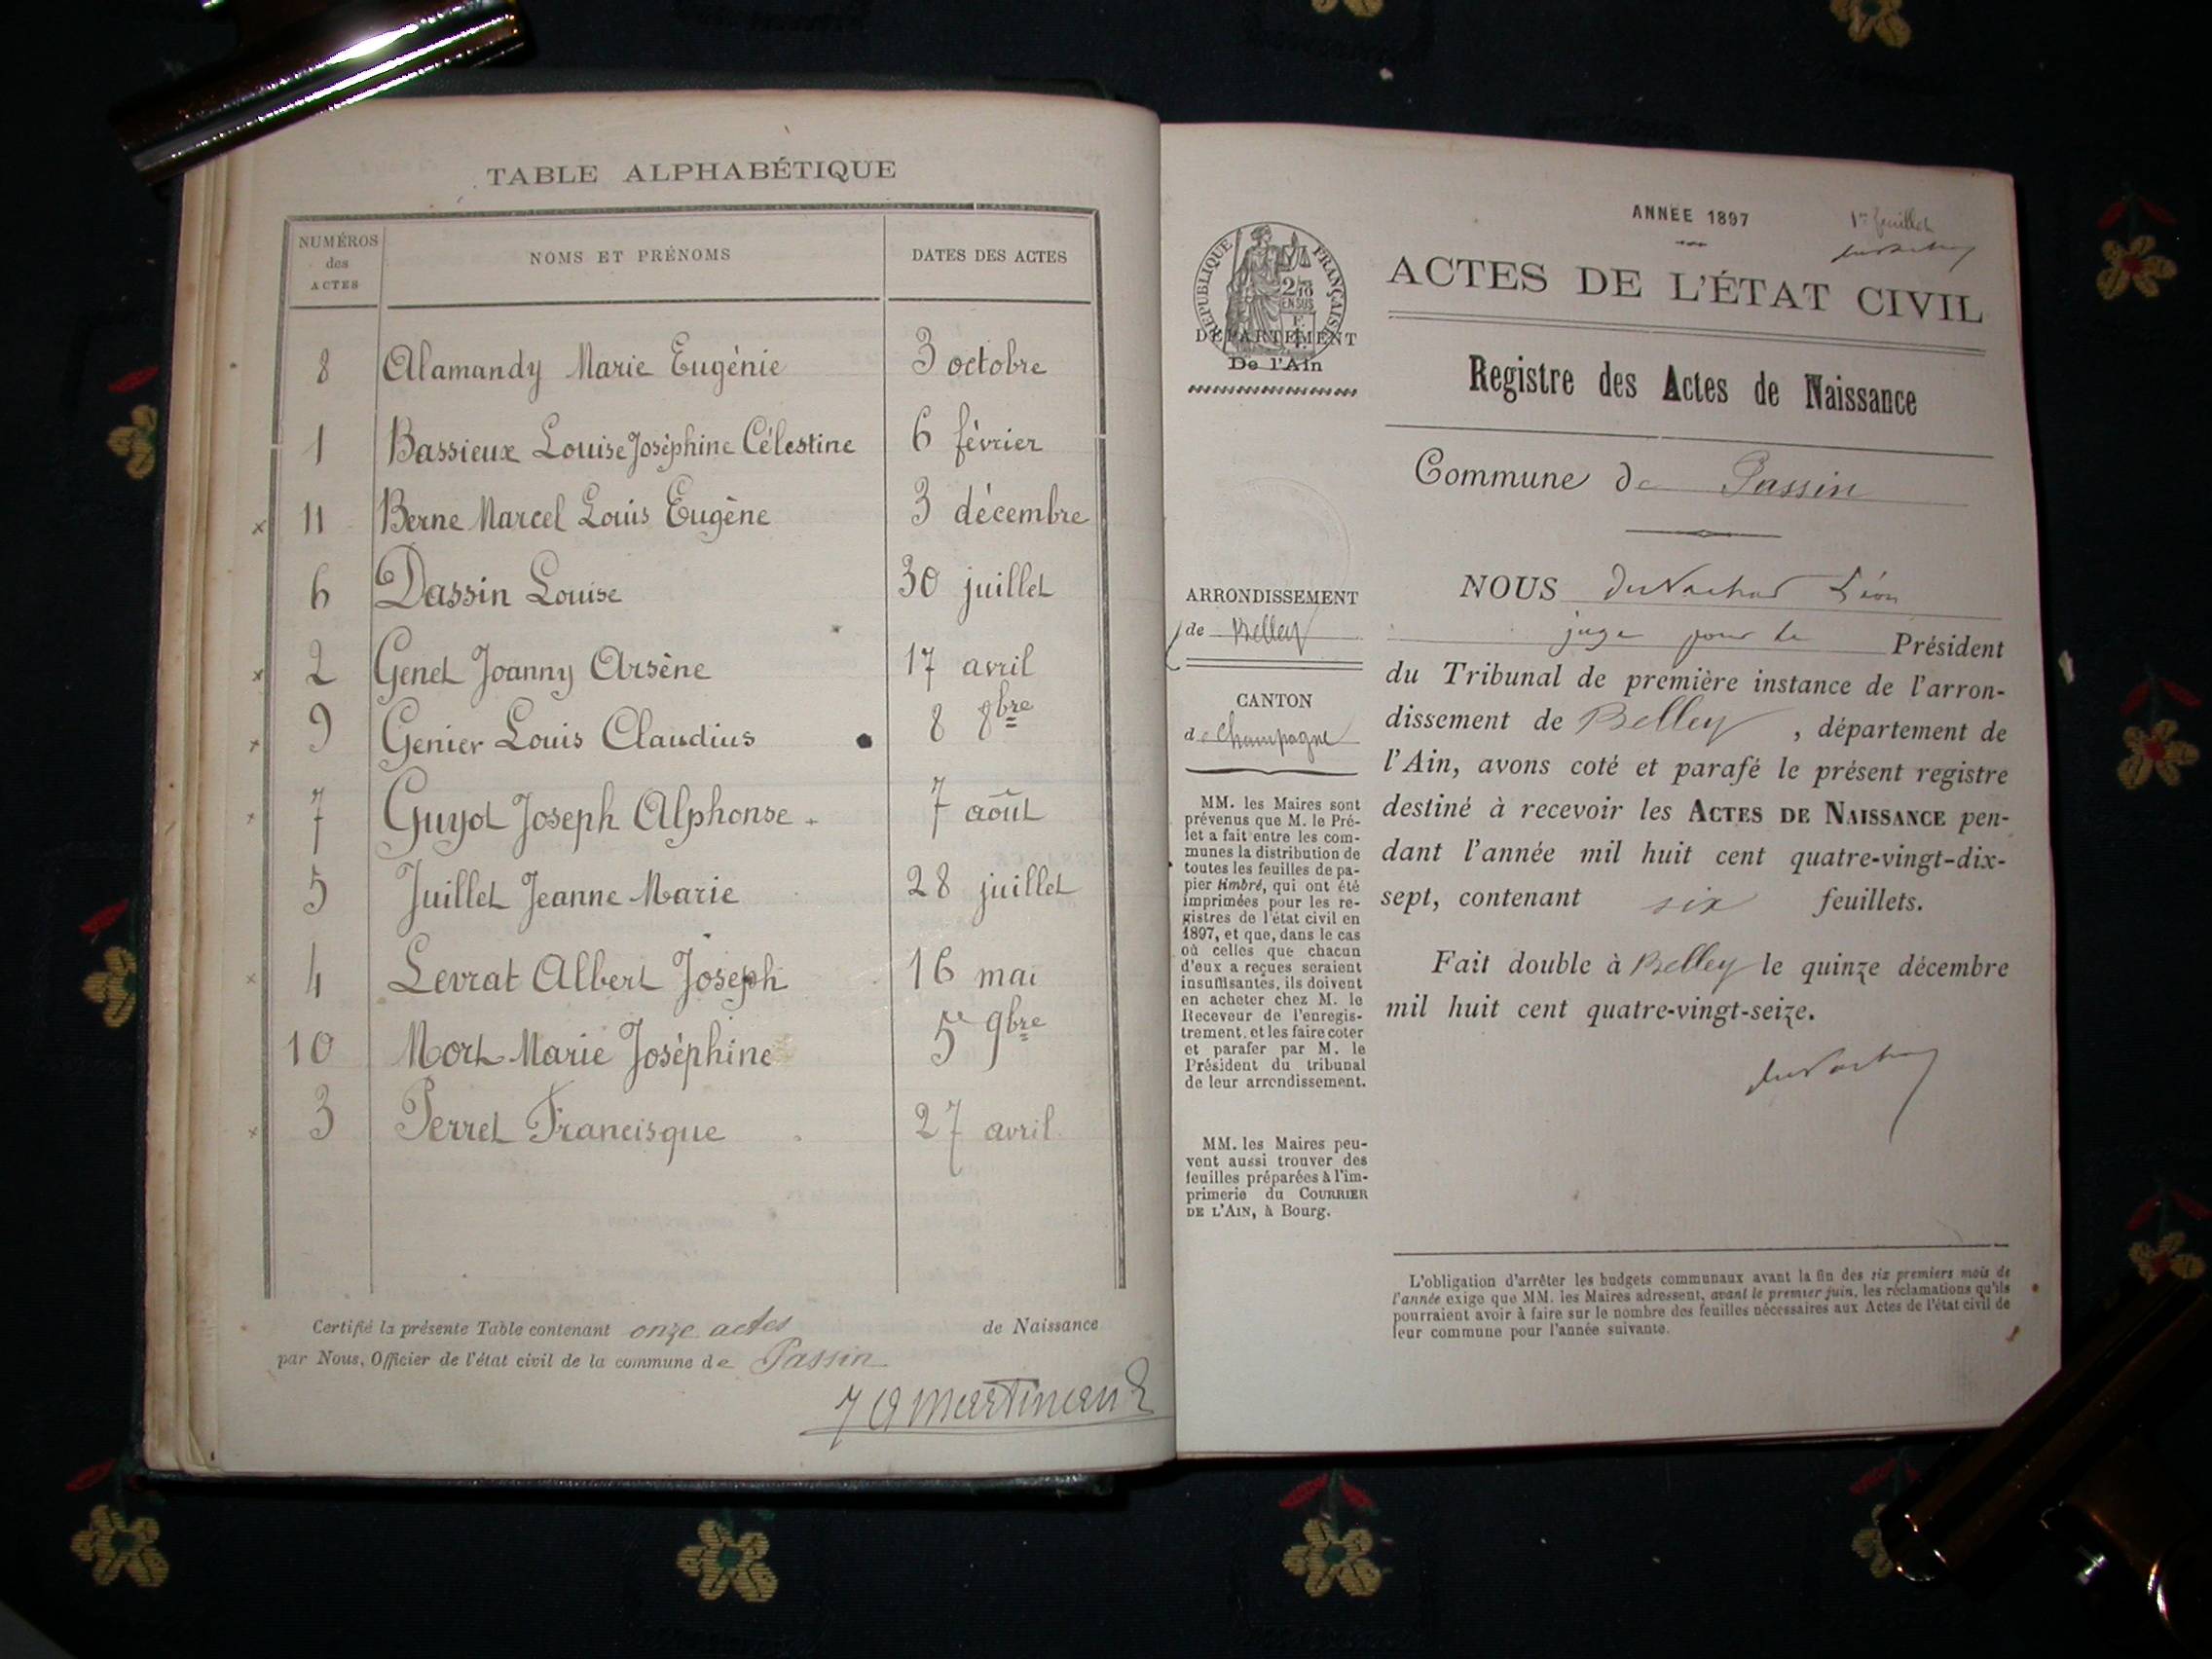 TABLE ALPHABÉTIQUE
NUMÉROS des ACTES NOMS ET PRÉNOMS DATES DES ACTES
8 Alamandy Marie Eugénie 3 octobre
1 Bassieux Louise Joséphine Célestine 6 février
x 11 Berne Marcel Louis Eugène 3 décembre
6 Dassin Louise 30 juillet
x 2 Genet Joanny Arsène 17 avril
x 9 Genier Louis Claudius 8 8bre
x 7 Guyot Joseph Alphonse 7 août
5 Juillet Jeanne Marie 28 juillet
x 4 Levrat Albert Joseph 16 mai
10 Mort Marie Joséphine 5 9bre
x 3 Perret Francisque 27 avril
Certifié la présente Table contenant onze actes de Naissance
par Nous, Officier de l'état civil de la commune de Passin
Martinand
ANNÉE 1897
1er feuillet
RÉPUBLIQUE FRANÇAISE
EN SUS
DÉPARTEMENT
De l'Ain
ACTES DE L'ÉTAT CIVIL
Registre des Actes de Naissance
Commune de Passin
ARRONDISSEMENT
de Belley
CANTON
de Champagne
MM. les Maires sont
prévenus que M. le Pré-
fet a fait entre les com-
munes la distribution de
toutes les feuilles de pa-
pier timbré, qui ont été
imprimées pour les re-
gistres de l'état civil en
1897, et que, dans le cas
où celles que chacun
d'eux a reçues seraient
insuffisantes, ils doivent
en acheter chez M. le
Receveur de l'enregis-
trement, et les faire coter
et parafer par M. le
Président du tribunal
de leur arrondissement.
MM. les Maires peu-
vent aussi trouver des
feuilles préparées à l'im-
primerie du COURRIER
DE L'AIN, à Bourg.
NOUS Léon
juge pour le Président
du Tribunal de première instance de l'arron-
dissement de Belley, département de
l'Ain, avons coté et parafé le présent registre
destiné à recevoir les ACTES DE NAISSANCE pen-
dant l'année mil huit cent quatre-vingt-dix-
sept, contenant six feuillets.
Fait double à Belley le quinze décembre
mil huit cent quatre-vingt-seize.
L'obligation d'arrêter les budgets communaux avant la fin des six premiers mois de
l'année exige que MM. les Maires adressent, avant le premier juin, les réclamations qu'ils
pourraient avoir à faire sur le nombre des feuilles nécessaires aux Actes de l'état civil de
leur commune pour l'année suivante.